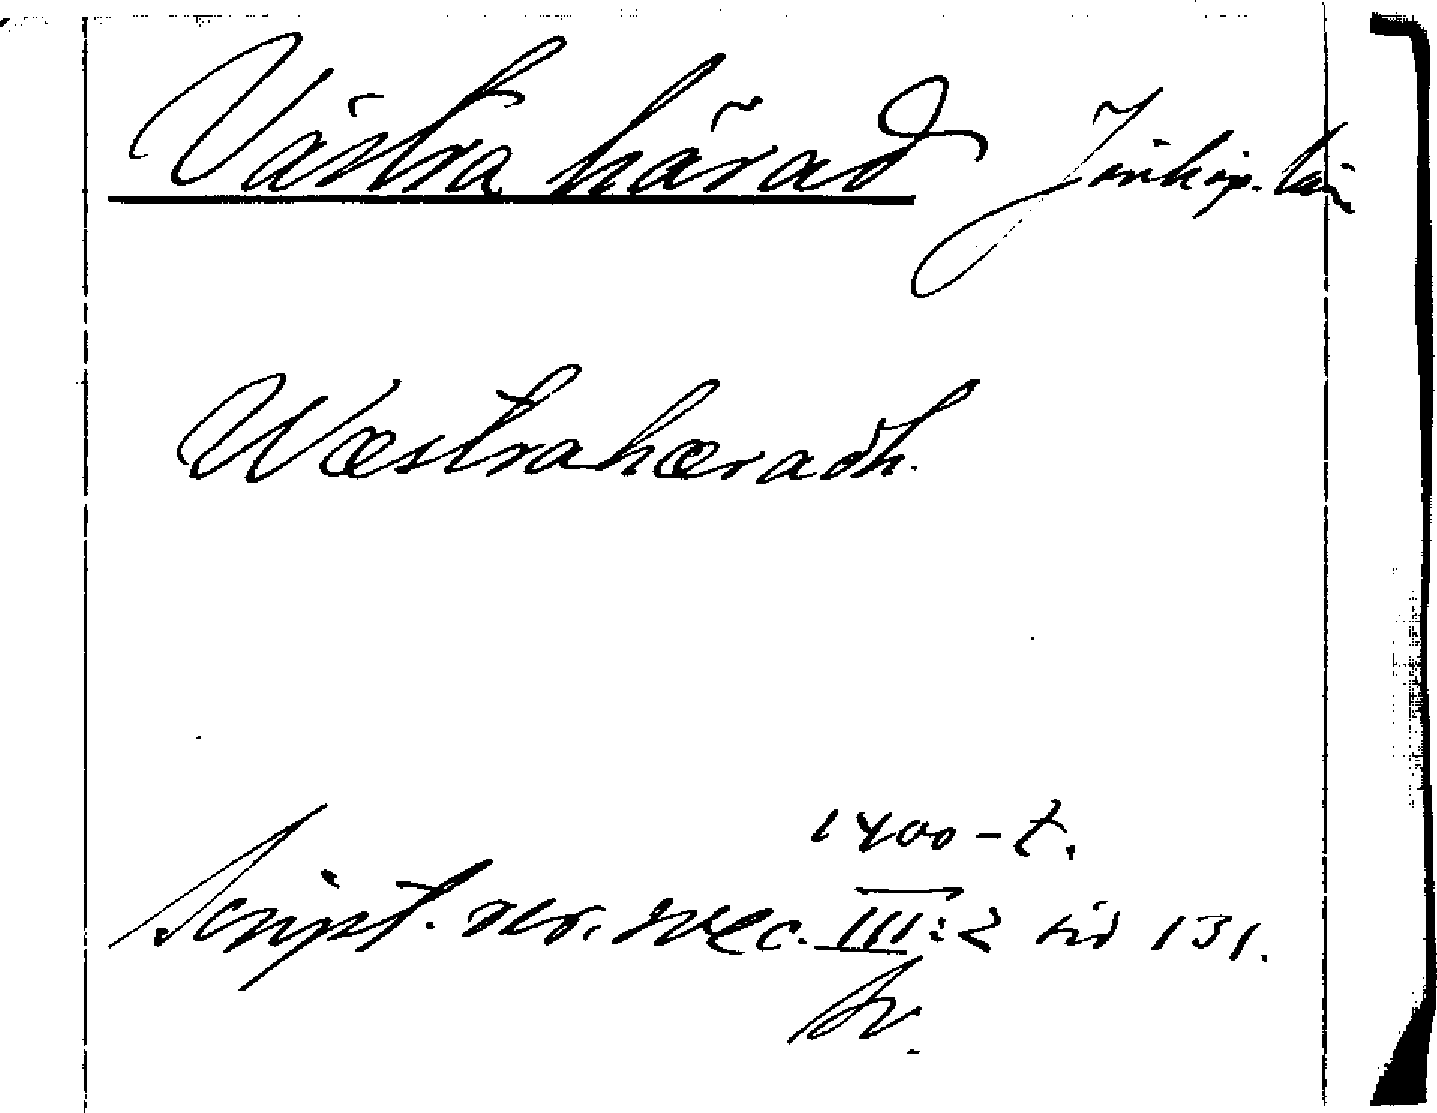 Västra härad Jönköp. län
Wæstrahæradh.
1400-t.
Script. rer. svec. III:2 sid 131.
tr.